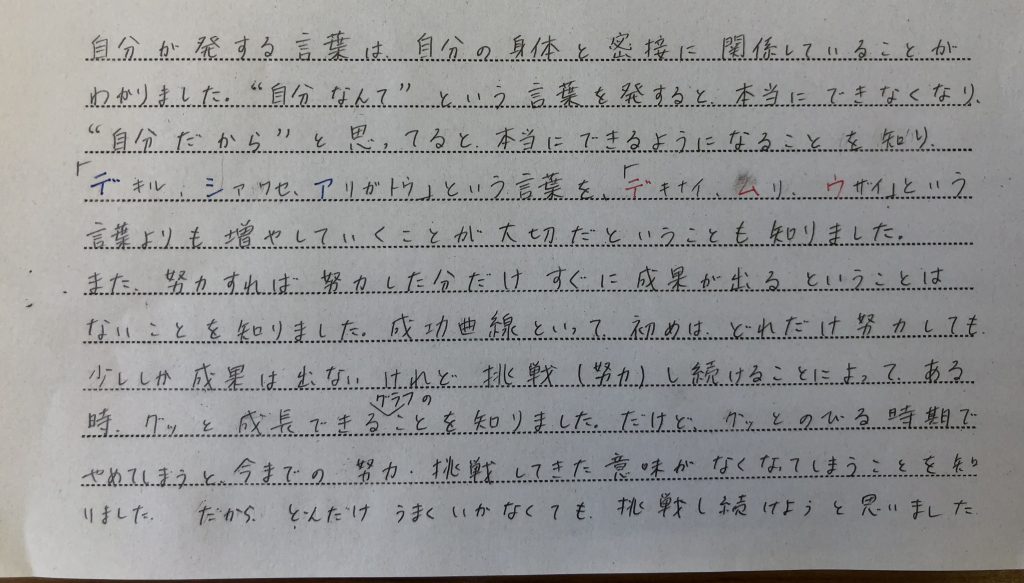 自分が発する言葉は、自分の身体と密接に関係していることが
わかりました。“自分なんて”という言葉を発すると、本当にできなくなり、
“自分だから”と思ってると、本当にできるようになることを知り、
「デキル、シアワセ、アリガトウ」という言葉を、「デキナイ、ムリ、ウザイ」という
言葉よりも増やしていくことが大切だということも知りました。
また、努力すれば努力した分だけすぐに成果が出るということは
ないことを知りました。成功曲線といって、初めは、どれだけ努力しても、
少ししか成果は出ないけれど挑戦(努力)し続けることによって、ある
グラフの
時、グッと成長できることを知りました。だけど、グッとのびる時期で
やめてしまうと、今までの努力・挑戦してきた意味がなくなってしまうことを知
りました。だから、どんだけうまくいかなくても、挑戦し続けようと思いました